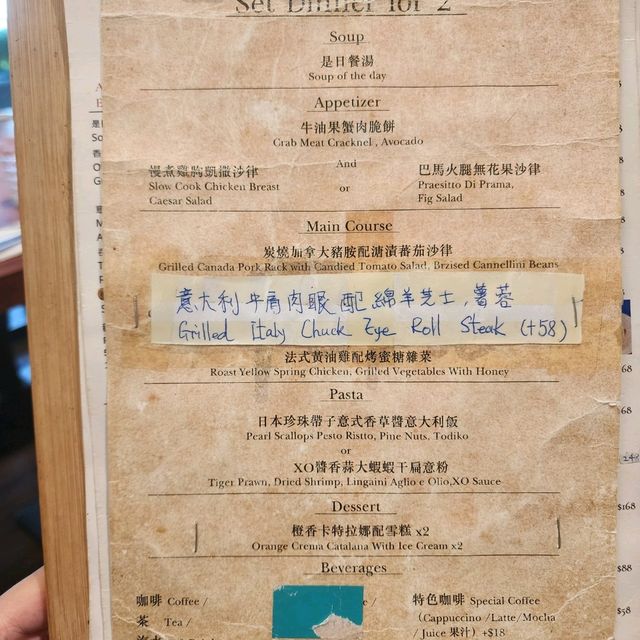 Set Dinner for 2
Soup
是日餐湯
Soup of the day
Appetizer
牛油果蟹肉脆餅
Crab Meat Cracknel , Avocado
And
慢煮雞胸凱撒沙律
Slow Cook Chicken Breast
Caesar Salad
or
巴馬火腿無花果沙律
Praesitto Di Prama,
Fig Salad
Main Course
炭燒加拿大豬胺配溏漬蕃茄沙律
Grilled Canada Pork Rack with Candied Tomato Salad, Brzised Cannellini Beans
意大利牛肩肉眼配綿羊芝士,薯蓉
Grilled Italy Chuck Eye Roll Steak (+58)
法式黄油雞配烤蜜糖雜菜
Roast Yellow Spring Chicken, Grilled Vegetables With Honey
Pasta
日本珍珠帶子意式香草醬意大利飯
Pearl Scallops Pesto Ristto, Pine Nuts, Todiko
or
XO醬香蒜大蝦蝦干扁意粉
Tiger Prawn, Dried Shrimp, Lingaini Aglio e Olio,XO Sauce
Dessert
橙香卡特拉娜配雪糕 x2
Orange Crema Catalana With Ice Cream x2
Beverages
咖啡 Coffee /
茶 Tea /
特色咖啡 Special Coffee
(Cappuccino /Latte/Mocha
/ Juice 果汁) +$18
$168
$88
$58